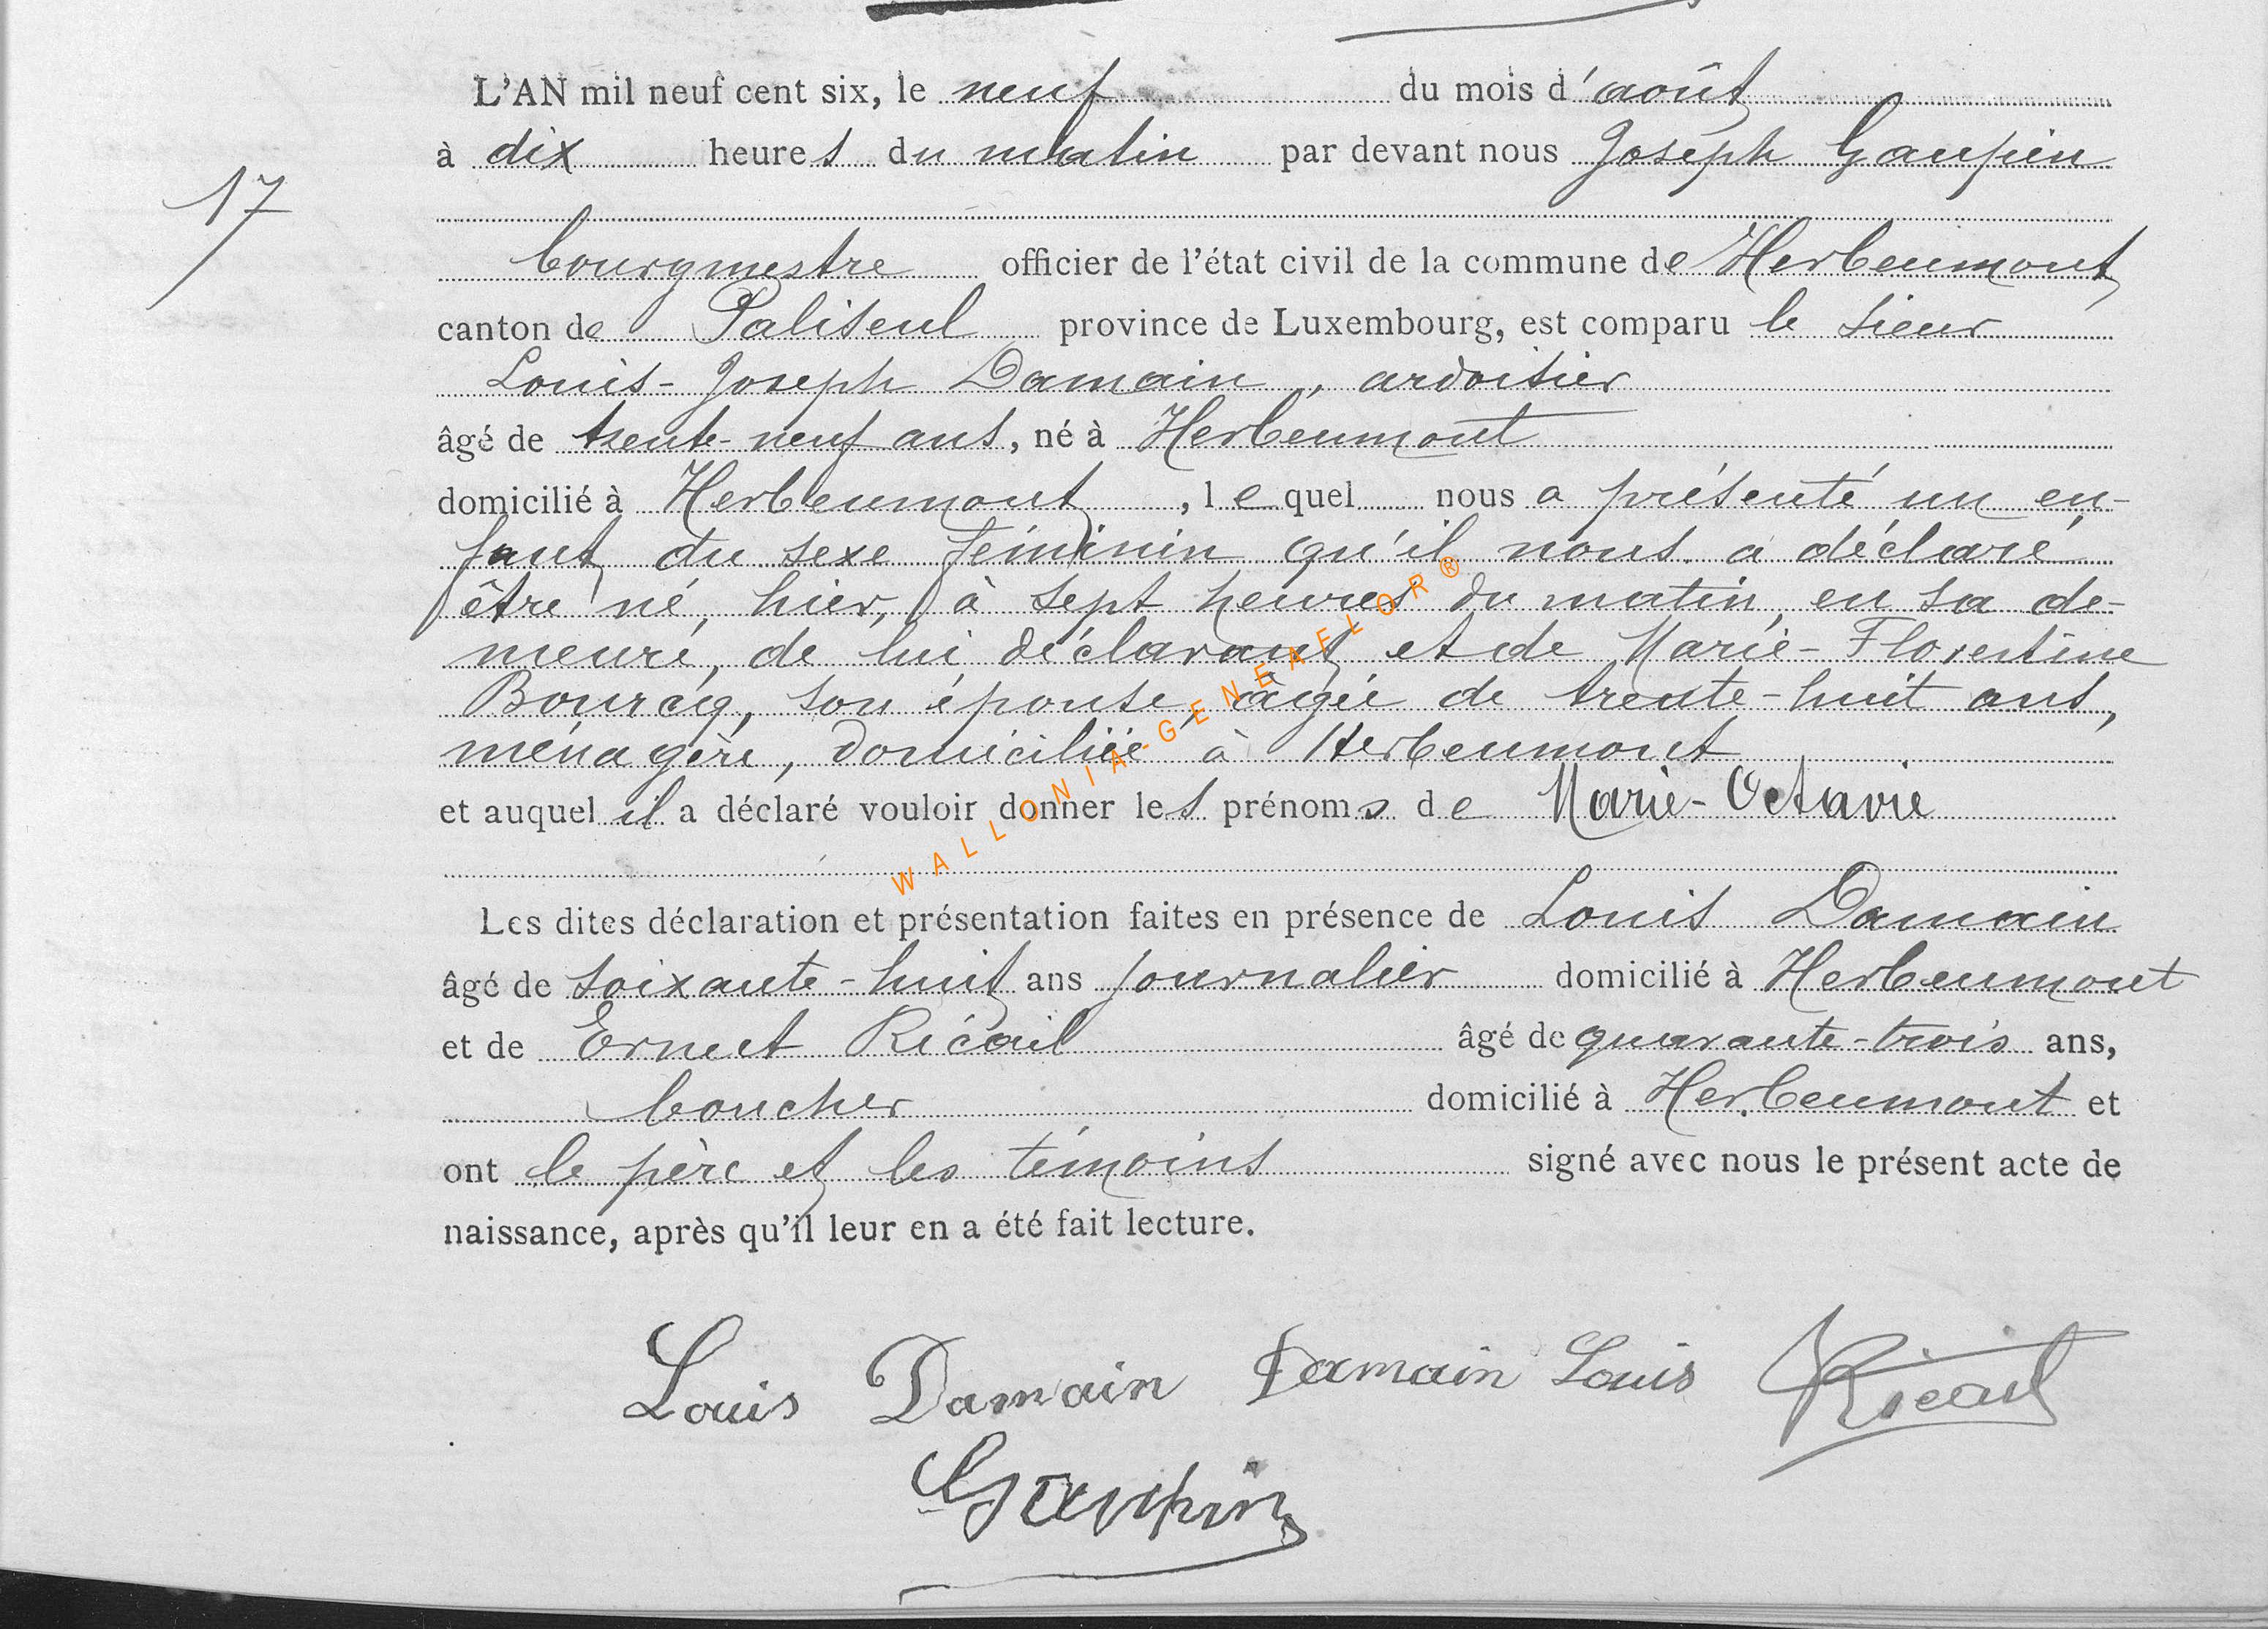 L'AN mil neuf cent six, le neuf du mois d'août
à dix heures du matin par devant nous Joseph Gaupin
17
bourgmestre officier de l'état civil de la commune de Herbeumont
canton de Paliseul province de Luxembourg, est comparu le sieur
Louis-Joseph Damain, ardoisier
âgé de trente-neuf ans, né à Herbeumont
domicilié à Herbeumont, lequel nous a présenté un en-
fant du sexe féminin qu'il nous a déclaré
être né, hier, à sept heures du matin, en sa de-
meure, de lui déclarant et de Marie-Florentine
Bourcq, son épouse, âgée de trente-huit ans,
ménagère, domiciliée à Herbeumont
et auquel il a déclaré vouloir donner les prénoms de Marie-Octavie
WALLONIA-GENEAFLOR®
Les dites déclaration et présentation faites en présence de Louis Damain
âgé de soixante-huit ans journalier domicilié à Herbeumont
et de Ernest Ricail âgé de quarante-trois ans,
boucher domicilié à Herbeumont et
ont le père et les témoins signé avec nous le présent acte de
naissance, après qu'il leur en a été fait lecture.
Louis Damain Damain Louis Ricail
Gaupin